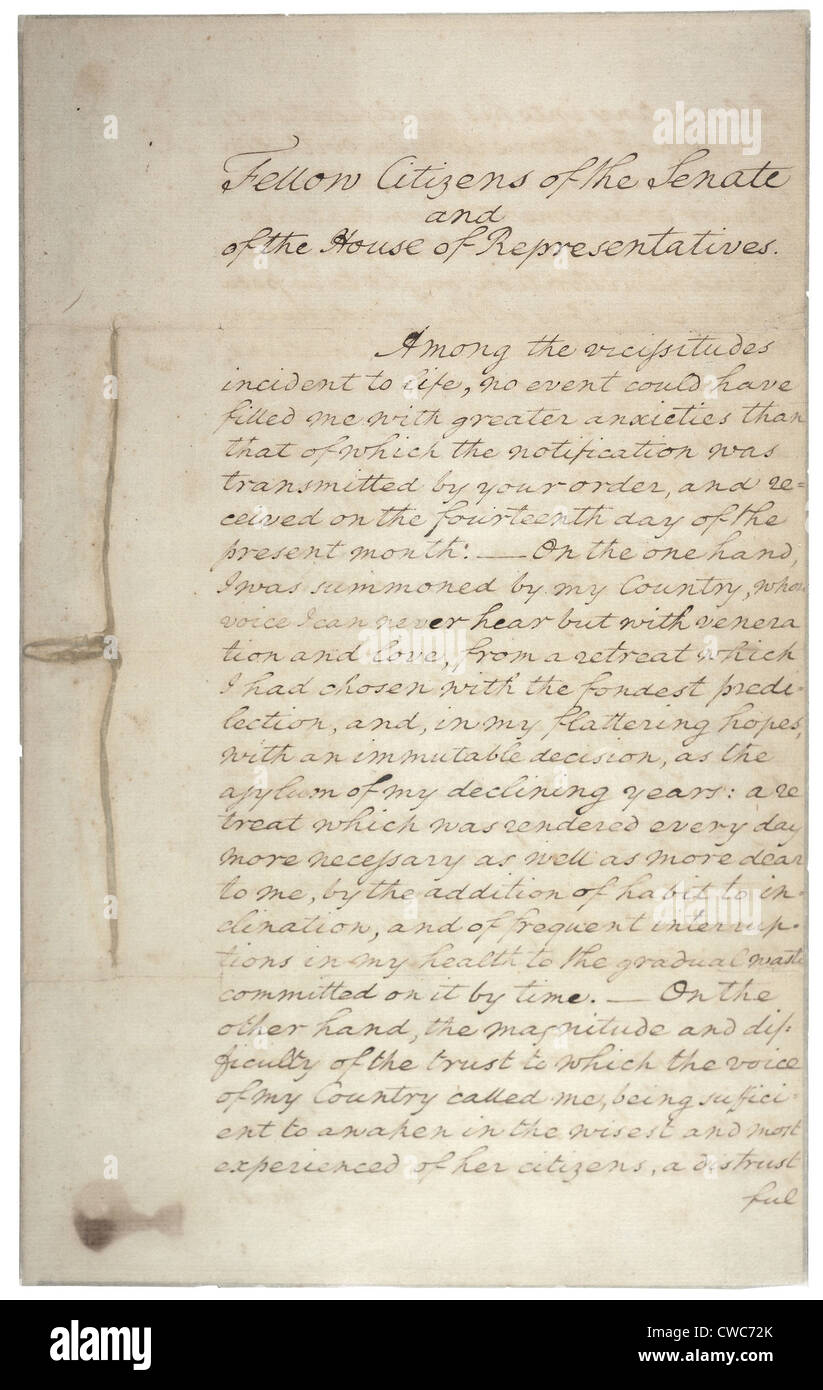 Fellow Citizens of the Senate
and
of the House of Representatives.
Among the vicissitudes
incident to life, no event could have
filled me with greater anxieties than
that of which the notification was
transmitted by your order, and re=
ceived on the fourteenth day of the
present month: — On the one hand,
I was summoned by my Country, whose
voice I can never hear but with venera
tion and love, from a retreat which
I had chosen with the fondest predi-
lection, and, in my flattering hopes,
with an immutable decision, as the
asylum of my declining years: a re
treat which was rendered every day
more necessary as well as more dear
to me, by the addition of habit to in-
clination, and of frequent interrup-
tions in my health to the gradual waste
committed on it by time. — On the
other hand, the magnitude and dif-
ficulty of the trust to which the voice
of my Country called me, being suffici-
ent to awaken in the wisest and most
experienced of her citizens, a distrust
ful
a alamy stock photo
alamy
Image ID: CWC72K
www.alamy.com